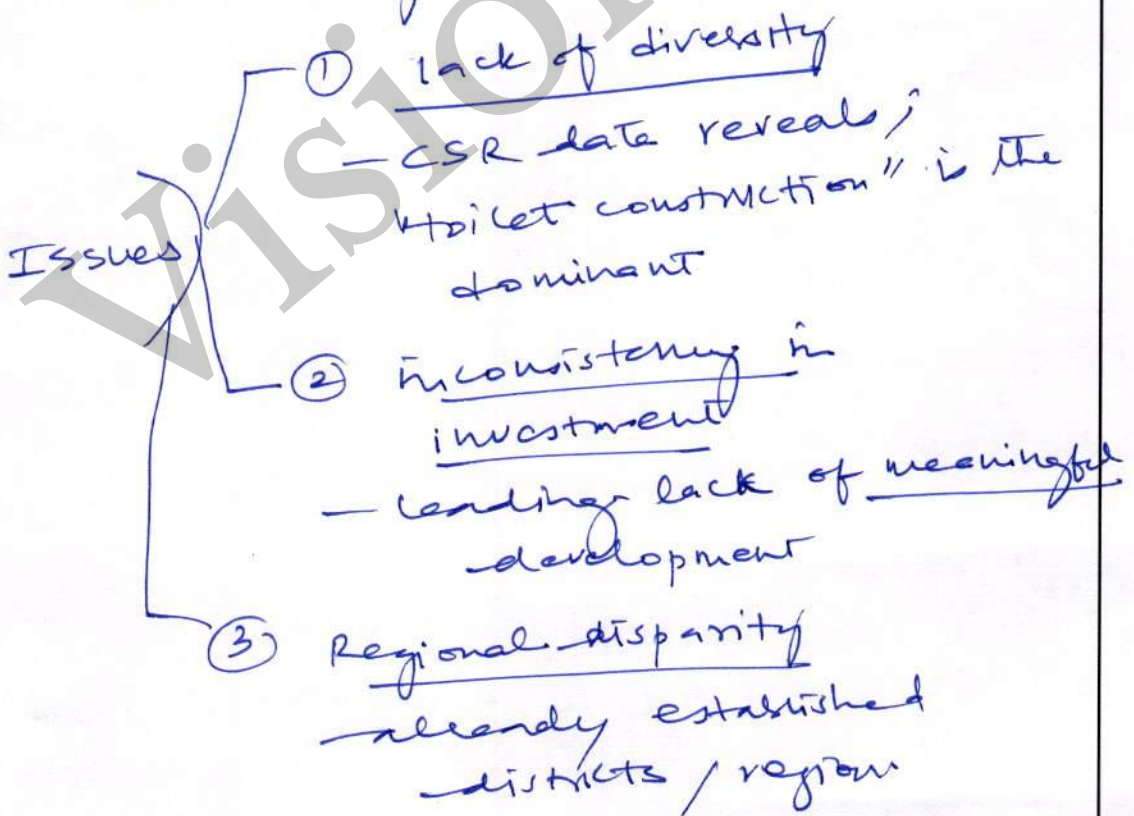 ① lack of diversity
— CSR data reveals,
"toilet construction" is the
dominant
Issues
② inconsistency in
investment
— Leading lack of meaningful
development
③ Regional disparity
— already established
districts / region
Vision